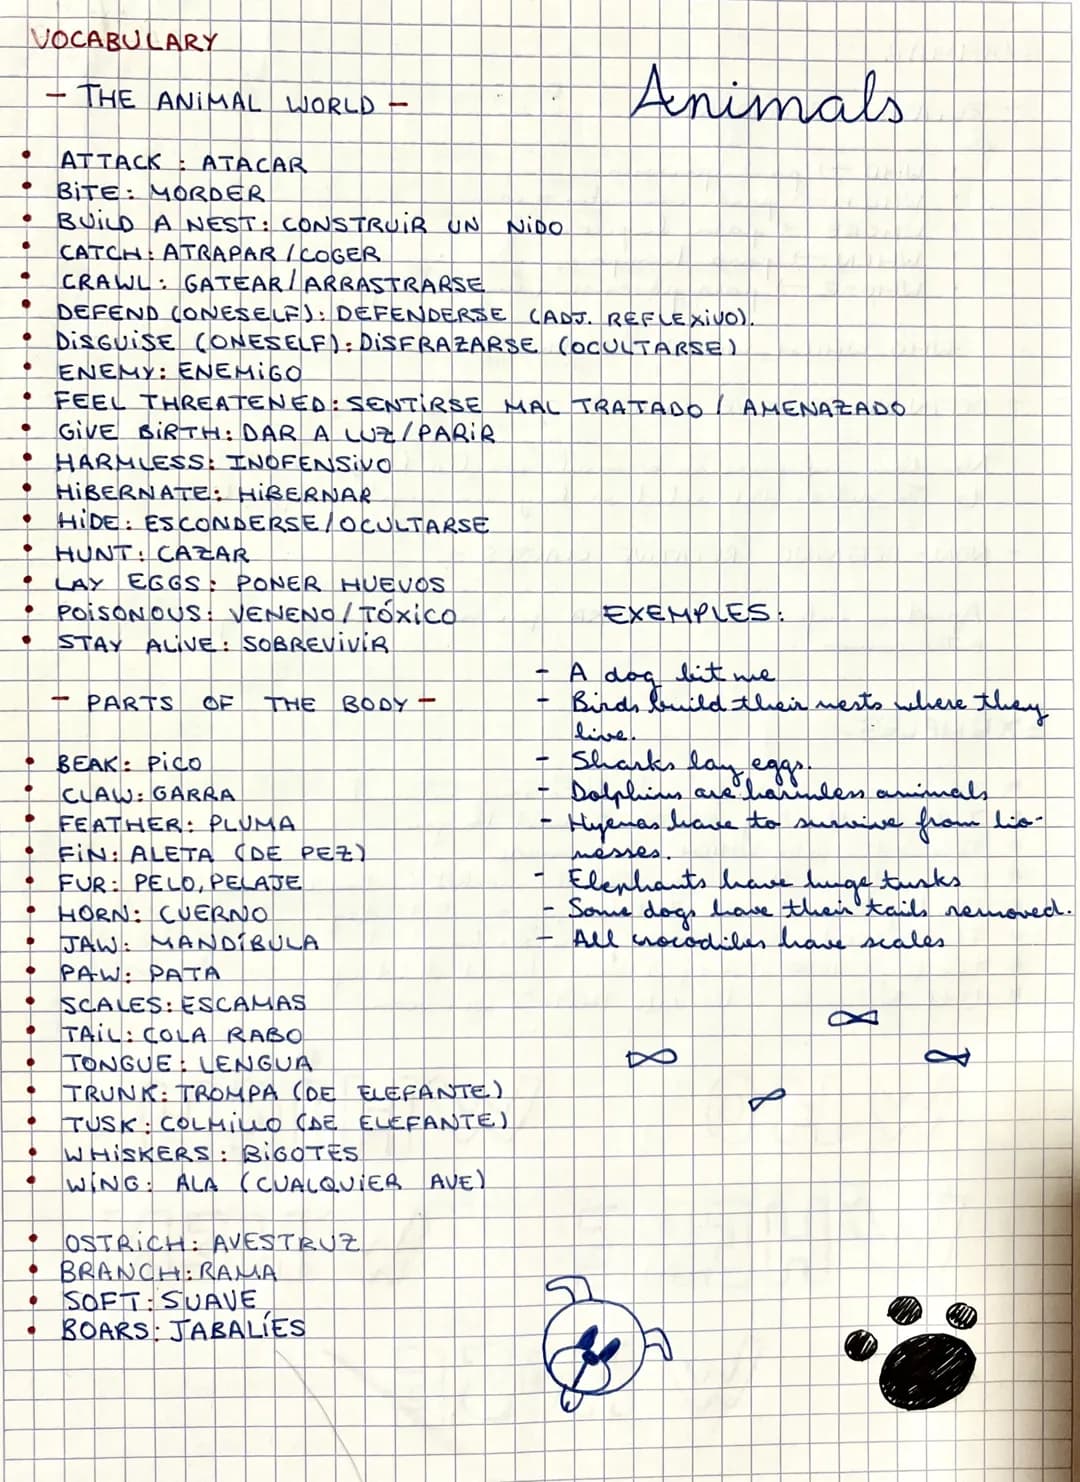 VOCABULARY
- THE ANIMAL WORLD -
Animals
• ATTACK : ATACAR
• BITE: MORDER
• BUILD A NEST: CONSTRUIR UN NIDO
• CATCH: ATRAPAR / COGER
• CRAWL: GATEAR / ARRASTRARSE
• DEFEND (ONESELF): DEFENDERSE (ADJ. REFLEXIVO).
• DISGUISE (ONESELF): DISFRAZARSE (OCULTARSE)
• ENEMY: ENEMIGO
• FEEL THREATENED: SENTIRSE MAL TRATADO / AMENAZADO
• GIVE BIRTH: DAR A LUZ / PARIR
• HARMLESS: INOFENSIVO
• HIBERNATE: HIBERNAR
• HIDE: ESCONDERSE / OCULTARSE
• HUNT: CAZAR
• LAY EGGS: PONER HUEVOS
• POISONOUS: VENENO / TÓXICO
• STAY ALIVE: SOBREVIVIR
- PARTS OF THE BODY -
• BEAK: PICO
• CLAW: GARRA
• FEATHER: PLUMA
• FIN: ALETA (DE PEZ)
• FUR: PELO, PELAJE
• HORN: CUERNO
• JAW: MANDÍBULA
• PAW: PATA
• SCALES: ESCAMAS
• TAIL: COLA RABO
• TONGUE: LENGUA
• TRUNK: TROMPA (DE ELEFANTE)
• TUSK: COLMILLO (DE ELEFANTE)
• WHISKERS: BIGOTES
• WING: ALA (CUALQUIER AVE)
• OSTRICH: AVESTRUZ
• BRANCH: RAMA
• SOFT: SUAVE
• BOARS: JABALÍES
EXEMPLES:
- A dog bit me
- Birds build their nests where they
live.
- Sharks lay eggs.
- Dolphins are harmless animals
- Hyenas have to survive from lio-
nesses.
- Elephants have huge tusks
- Some dogs have their tails removed.
- All crocodiles have scales